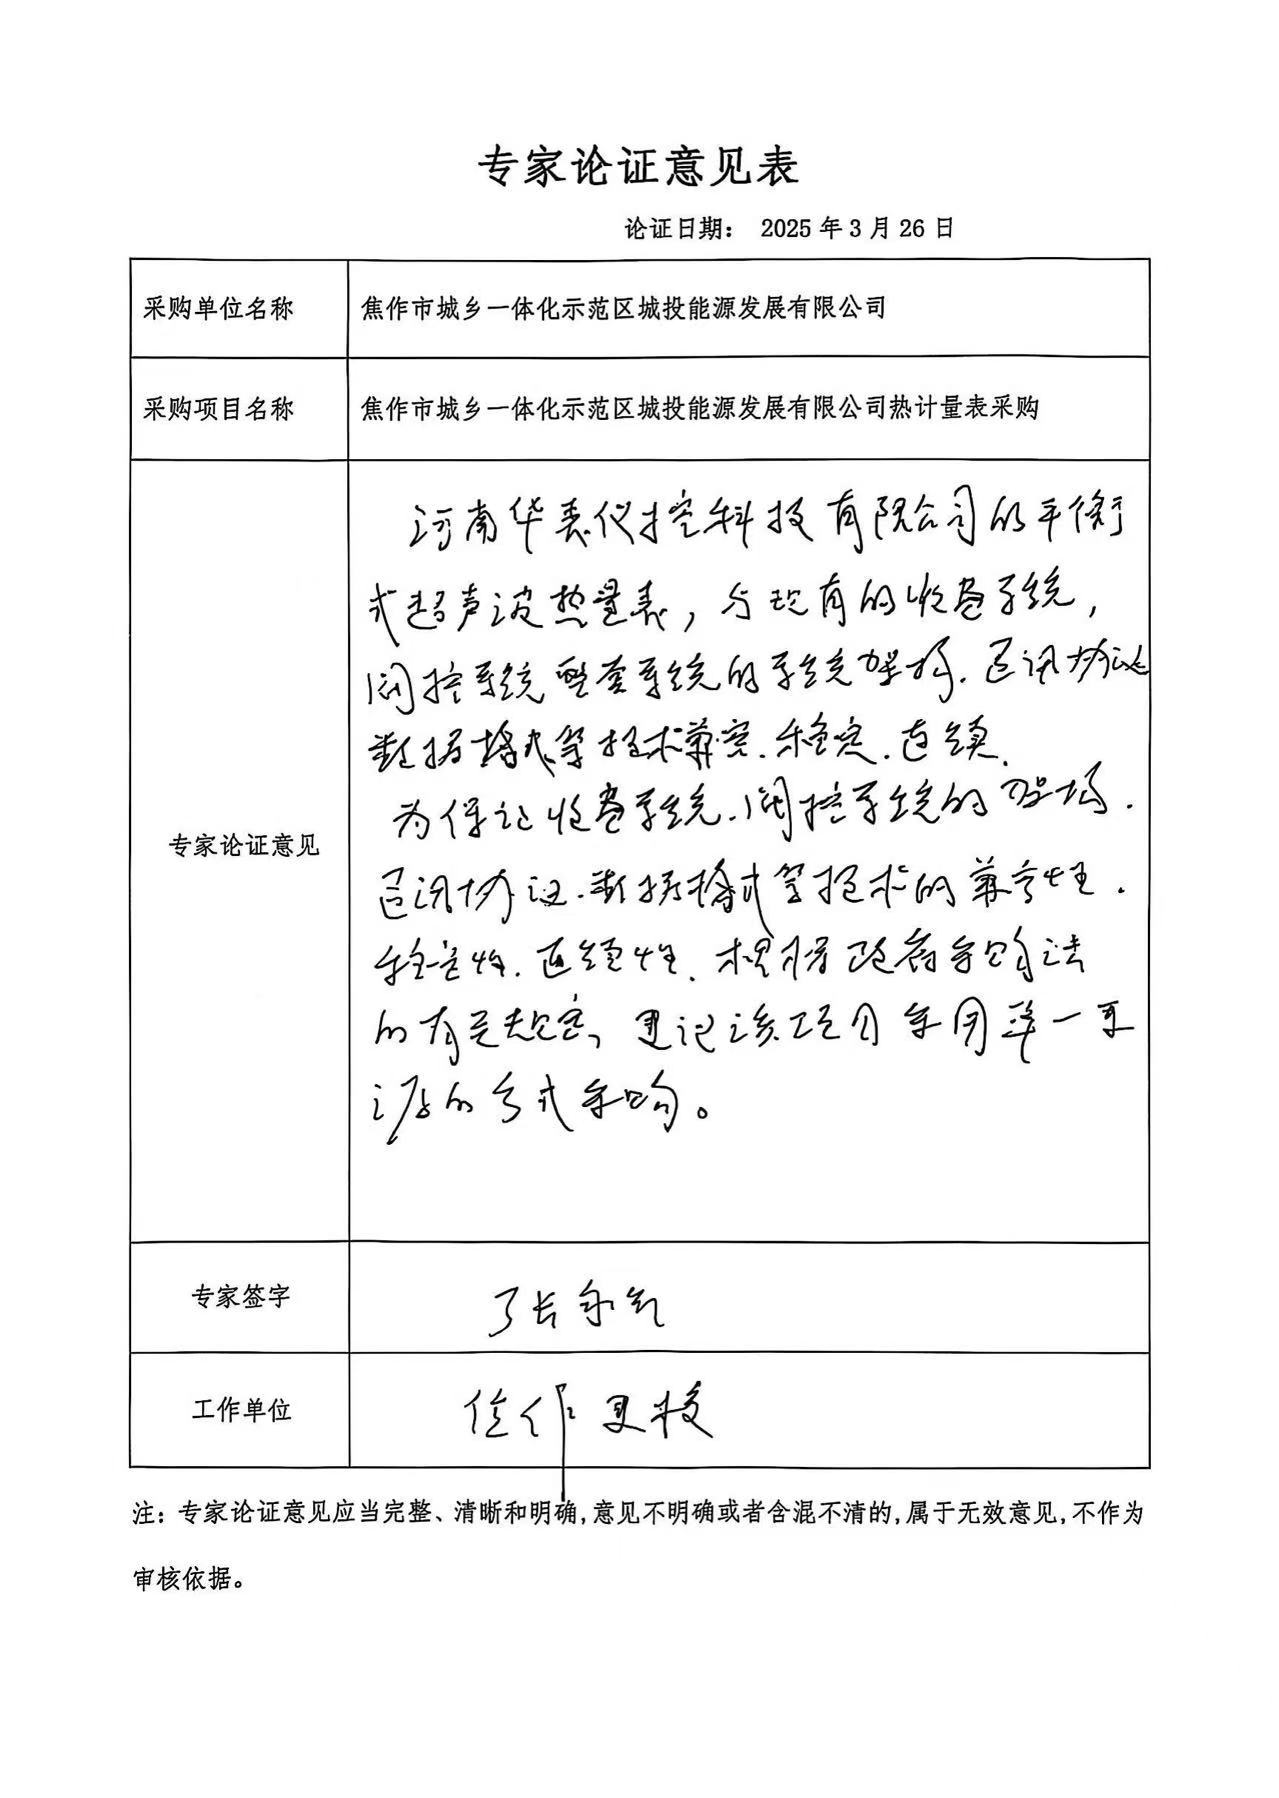 专家论证意见表
论证日期： 2025年3月26日
采购单位名称
焦作市城乡一体化示范区城投能源发展有限公司
采购项目名称
焦作市城乡一体化示范区城投能源发展有限公司热计量表采购
专家论证意见
河南华表仪控科技有限公司的平衡
式超声波热量表，与现有的收费系统，
阀控系统整套系统的系统架构、通讯协议
数据格式等技术兼容、稳定、连续、
为保证收费系统、阀控系统的架构、
通讯协议、数据格式等技术的兼容性、
稳定性、连续性、根据政府采购法
的有关规定，建议该项目采用单一来
源的方式采购。
专家签字
张永
工作单位
焦作
注：专家论证意见应当完整、清晰和明确，意见不明确或者含混不清的，属于无效意见，不作为
审核依据。